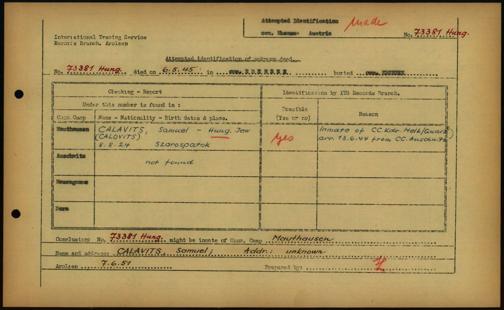 Attempted Identification
made
International Tracing Service
Records Branch, Arolsen
com. Austria No. 73381 Hung.
Attempted identification of unknown dead
No. 73381 Hung. died on 6.5.45. in com. buried com.
Checking - Report
Identification by ITS Records Branch.
Under this number is found in :
Possible (Yes or no)
Reason
Conc. Camp
Name - Nationality - Birth dates & place.
Mauthausen CALAVITS, Samuel - Hung. Jew
(CALOVITS)
8.8.24 Szarospatak
yes
Inmate of CC. Kdr. Melk/Quarz
arr. 13.6.44 from CC. Auschwitz
Auschwitz
not found
Neuengamme
Dora
Conclusion: No. 73381 Hung. might be inmate of Conc. Camp Mauthausen
Name and address: CALAVITS, Samuel; Addr: unknown
Arolsen 7.6.51 Prepared by: